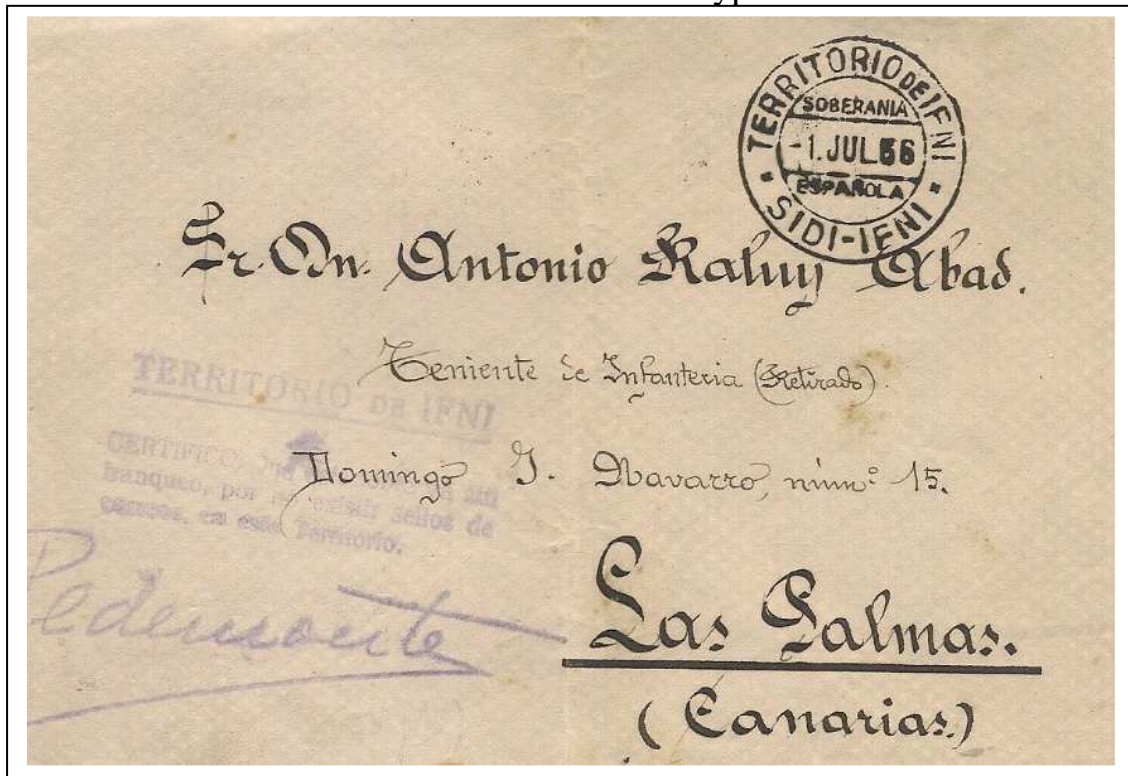 TERRITORIO DE IFNI
SOBERANIA
-1.JUL 36
ESPAÑOLA
SIDI-IFNI
Sr. Dn. Antonio Raluy Abad.
Teniente de Infanteria (Retirado).
Domingo J. Navarro, núm.º 15.
Las Palmas.
(Canarias.)
TERRITORIO DE IFNI
CERTIFICO: Que
franqueo, por no existir sellos de
correos, en este Territorio.
Pedemonte